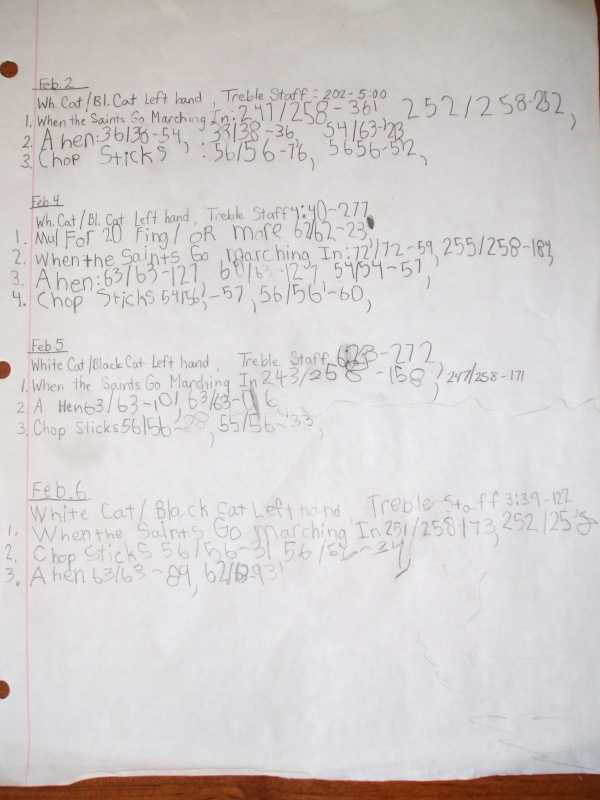 Feb. 2
Wh. Cat/Bl. Cat Left hand, Treble Staff: 202-5:00
1. When the Saints Go Marching In: 247/258-361 252/258-232,
2. A hen: 36/38-54, 33/38-36, 54/63-123
3. Chop Sticks: 56/56-76, 5656-52,
Feb 4
Wh. Cat/Bl. Cat Left hand, Treble Staff 4:40-277
1. Mul For 20 Fing/ OR more 62/62-23
2. When the Saints Go Marching In: 72/72-59, 255/258-189,
3. A hen: 63/63-127, 60/63-127 54/54-57,
4. Chop Sticks 54/56,-57, 56/56-60,
Feb 5
White Cat/Black Cat Left hand, Treble Staff -272
1. When the Saints Go Marching In 243/258-158, 247/258-171
2. A Hen 63/63-101, 63/63-
3. Chop Sticks 56/56-28, 55/56-33,
Feb. 6
White Cat/Black Cat Left hand Treble Staff 3:39-122
1. When the Saints Go Marching In 251/258/173, 252/258
2. Chop Sticks 56/56-31 56/-34,
3. A hen 63/63-89, 931